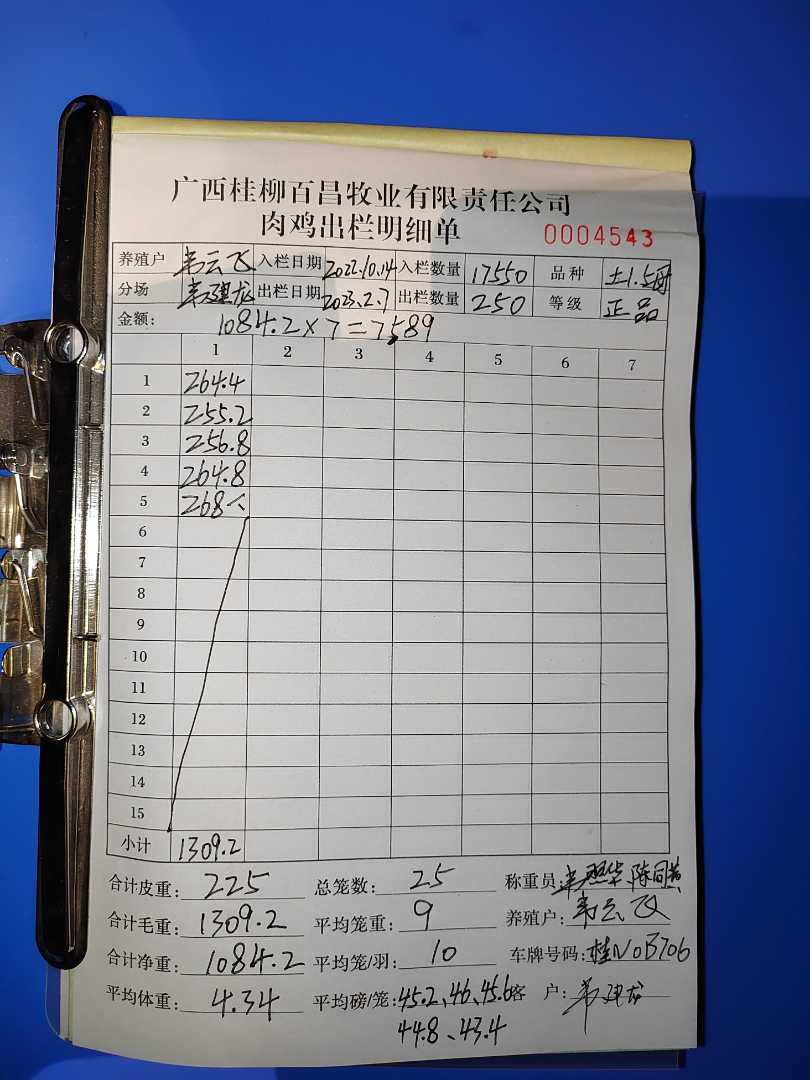 广西桂柳百昌牧业有限责任公司
肉鸡出栏明细单 0004543
养殖户 韦云飞 入栏日期 2022.10.14 入栏数量 17550 品种 土1.5
分场 韦建龙 出栏日期 2023.2.7 出栏数量 250 等级 正品
金额: 1084.2×7=7589
1 2 3 4 5 6 7
1 264.4
2 255.2
3 256.8
4 264.8
5 268
6
7
8
9
10
11
12
13
14
15
小计 1309.2
合计皮重: 225 总笼数: 25 称重员: 陈同
合计毛重: 1309.2 平均笼重: 9 养殖户: 韦云飞
合计净重: 1084.2 平均笼/羽: 10 车牌号码: 桂N0B706
平均体重: 4.34 平均磅/笼: 45.2、46、45.6 客户: 韦建龙
44.8、43.4